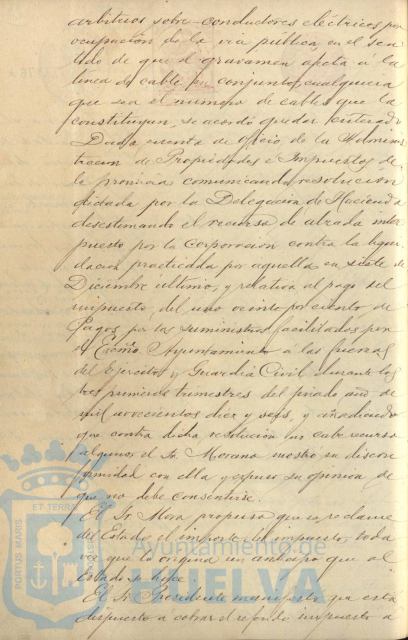 arbitrios sobre conductores eléctricos por
ocupación de la via pública, en el sen
tido de que el gravamen afecta á la
linea de cable en conjunto, cualquiera
que sea el número de cables que la
constituyan, se acordó quedar enterado
Dada cuenta de oficio de la Adminis
tracion de Propiedades é Impuestos de
la provincia comunicando resolucion
dictada por la Delegación de Hacienda
desestimando el recurso de alzada inter
puesto por la Corporacion contra la liqui
dación practicada por aquella en siete de
Diciembre ultimo, y relativa al pago del
impuesto del uno veinte por ciento de
Pagos por los suministros facilitados por
el Excmo. Ayuntamiento á las fuerzas
del Ejercito y Guardia Civil durante los
tres primeros trimestres del pasado año de
mil novecientos diez y seis, y añadiendo
que contra dicha resolución no cabe recurso
alguno, el Sr. Moreno mostró su discon
formidad con ella y expuso su opinión de
que no debe consentirse.
El Sr. Mora propuso que se reclame
del Estado el importe del impuesto, toda
vez que lo origina un anticipo que al
Estado se hace.
El Sr. Presidente manifestó que está
dispuesto a cobrar el referido impuesto a
PORTUS MARIS
ET TERRAE
Ayuntamiento de
HUELVA